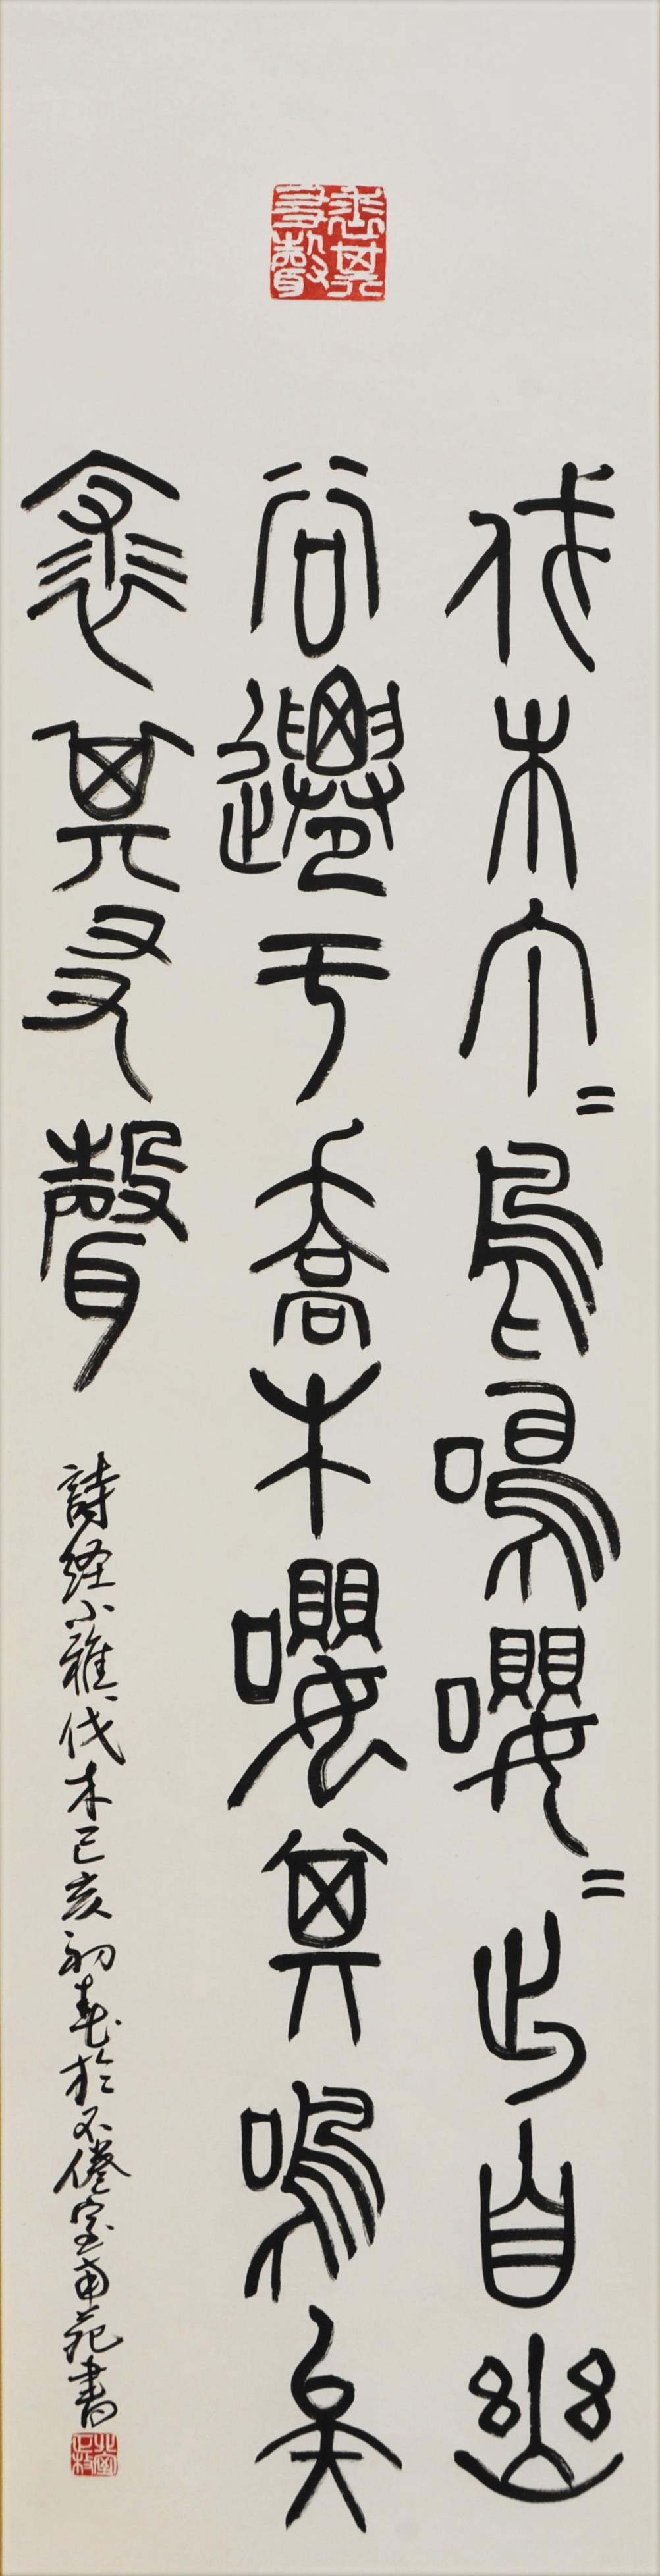 求其友聲
伐木丁〻鳥鳴嚶〻出自幽
谷遷于喬木嚶其鳴矣
求其友聲
詩経小雅伐木己亥初春於不倦室南苑書